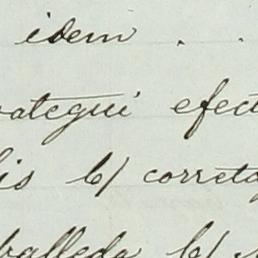 idem . .
ategui efect
is b/ correta
balleda b/